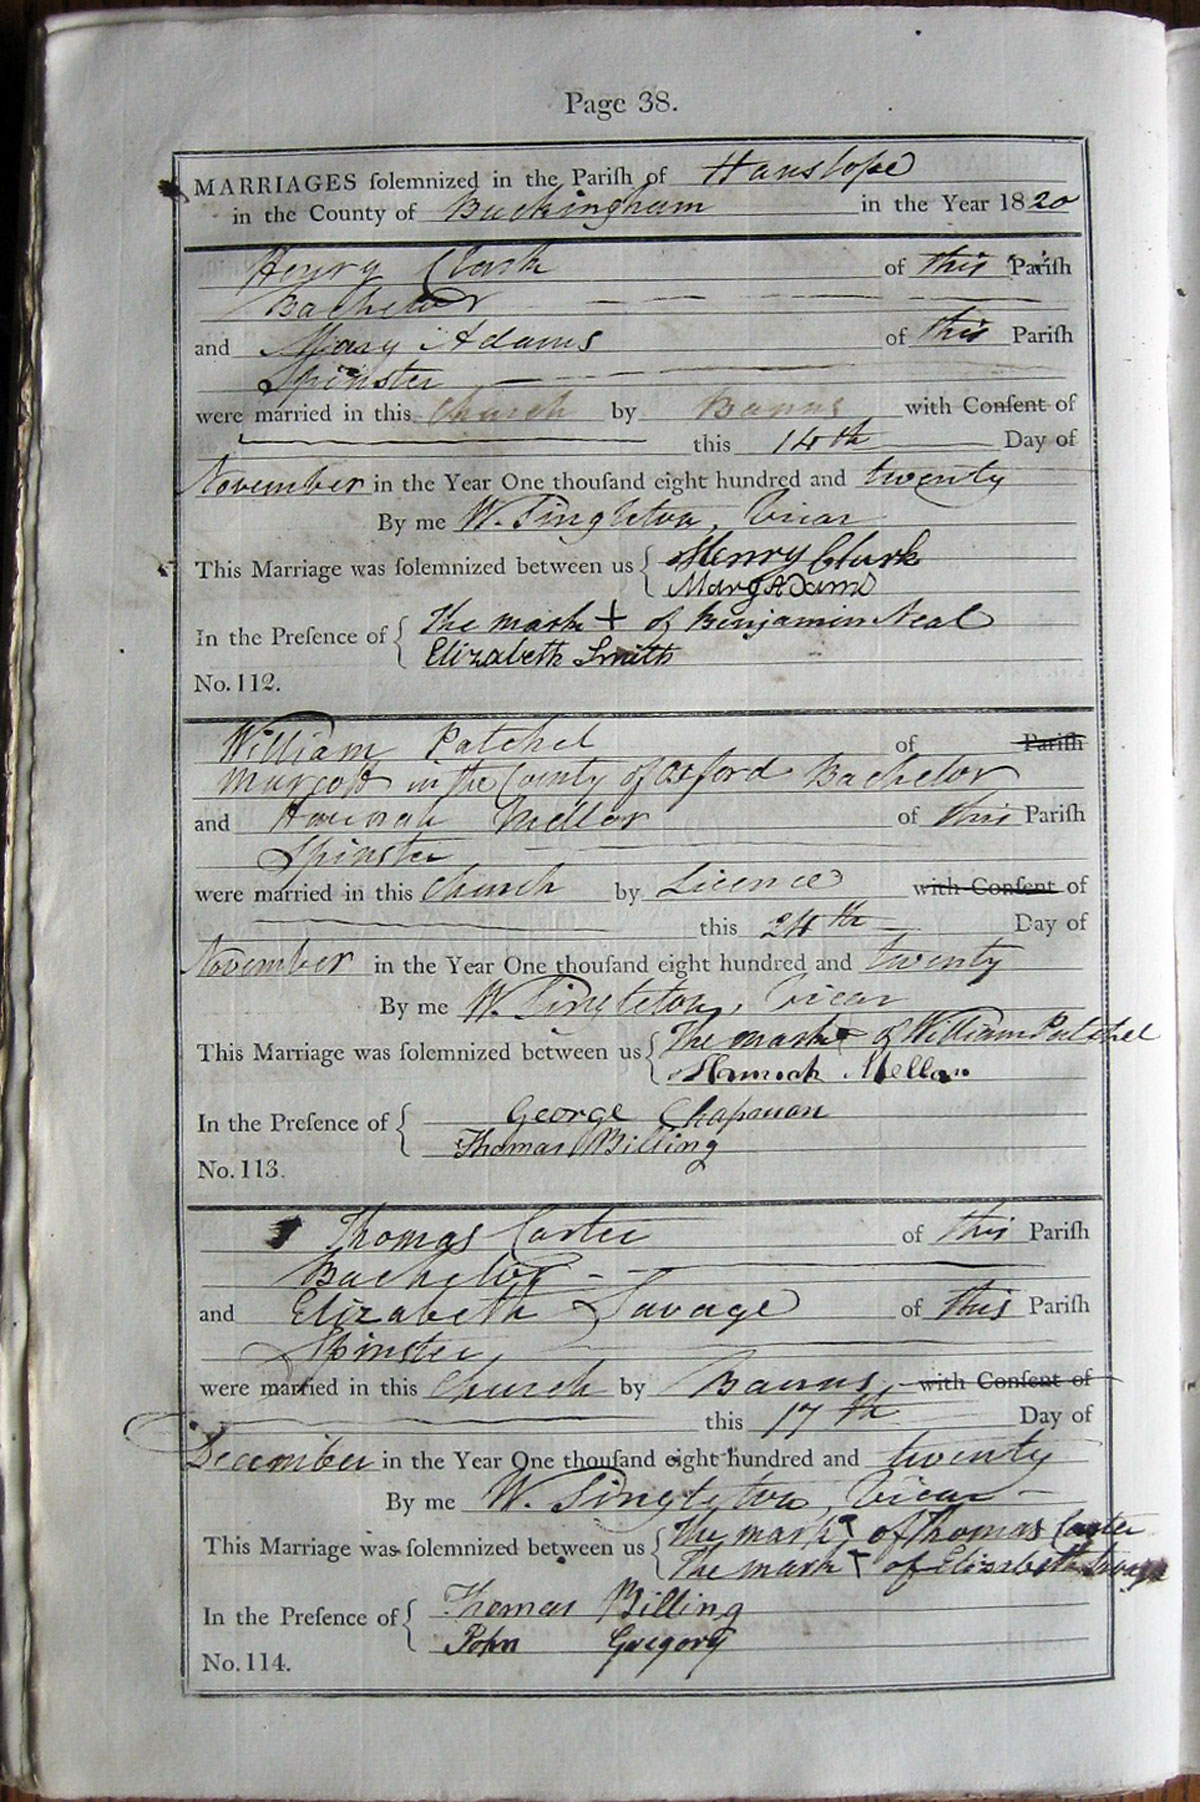 Page 38.
MARRIAGES ſolemnized in the Pariſh of Hanslope
in the County of Buckingham in the Year 1820
Henry Clark of this Pariſh
Bachelor
and Mary Adams of this Pariſh
Spinster
were married in this Church by Banns with Conſent of
this 14th Day of
November in the Year One thouſand eight hundred and twenty
By me W. Singleton, Vicar
This Marriage was ſolemnized between us { Henry Clark
Mary Adams
In the Preſence of { The mark + of Benjamin Neal
Elizabeth Smith
No. 112.
William Patchel of Pariſh
in the County of Oxford Bachelor
and Hannah Mellor of this Pariſh
Spinster
were married in this Church by Licence with Conſent of
this 24th Day of
November in the Year One thouſand eight hundred and twenty
By me W. Singleton, Vicar
This Marriage was ſolemnized between us { The mark + of William Patchel
Hannah Mellor
In the Preſence of { George Chapman
Thomas Billing
No. 113.
Thomas Carter of this Pariſh
Bachelor
and Elizabeth Savage of this Pariſh
Spinster
were married in this Church by Banns with Conſent of
this 17th Day of
December in the Year One thouſand eight hundred and twenty
By me W. Singleton, Vicar
This Marriage was ſolemnized between us { The mark + of Thomas Carter
The mark + of Elizabeth Savage
In the Preſence of { Thomas Billing
John Gregory
No. 114.